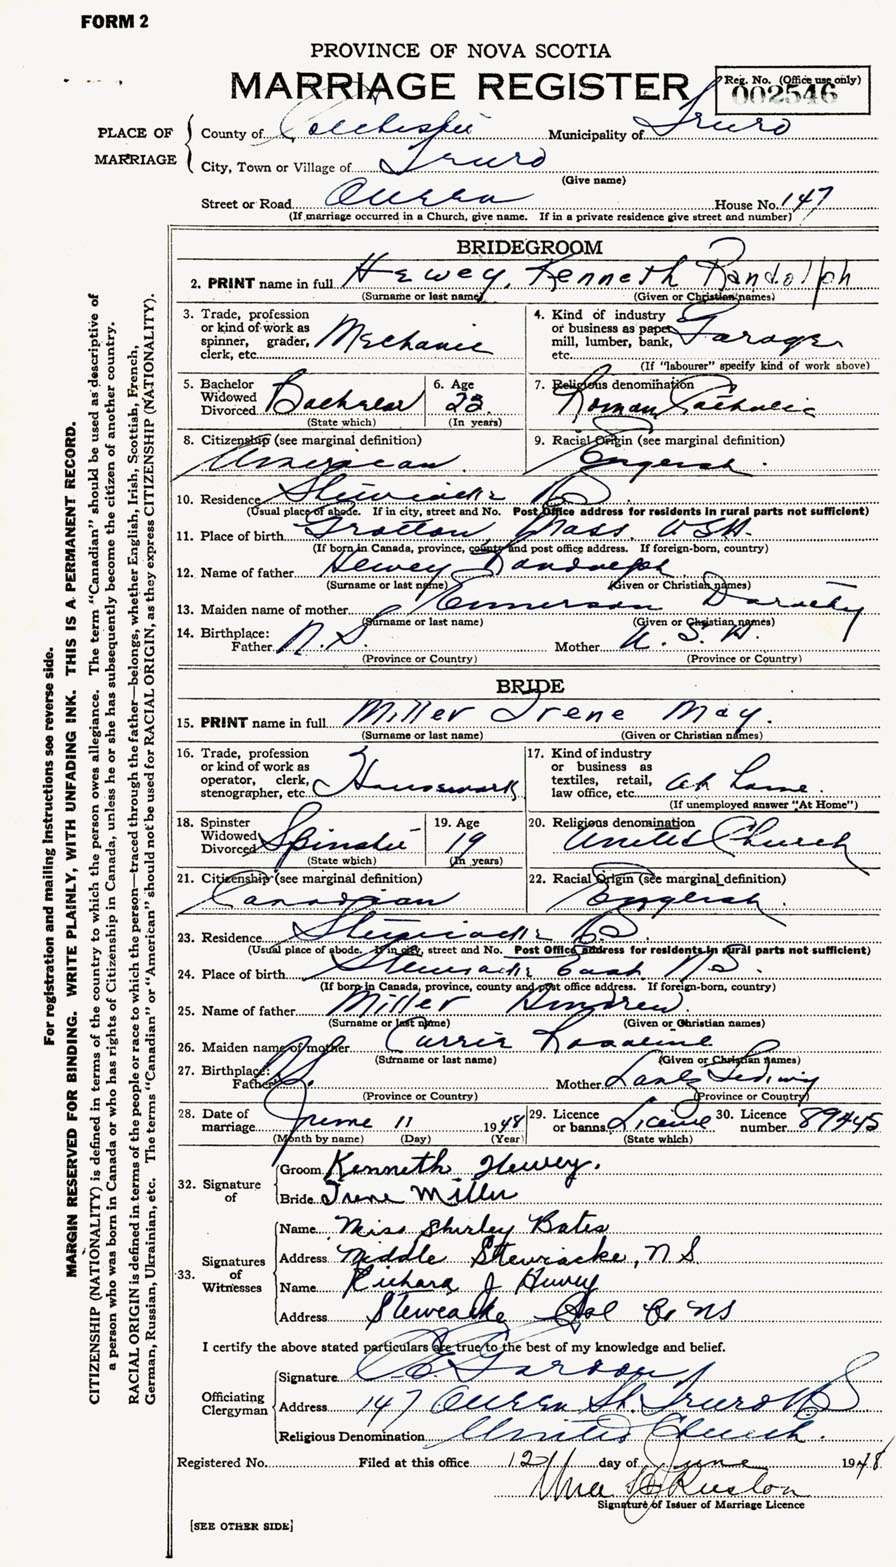 FORM 2
PROVINCE OF NOVA SCOTIA
MARRIAGE REGISTER
Reg. No. (Office use only)
002546
PLACE OF MARRIAGE
County of Colchester Municipality of Truro
City, Town or Village of Truro
(Give name)
Street or Road Queen House No. 147
(If marriage occurred in a Church, give name. If in a private residence give street and number)
BRIDEGROOM
2. PRINT name in full Hewey, Kenneth Randolph
(Surname or last name) (Given or Christian names)
3. Trade, profession or kind of work as spinner, grader, clerk, etc. Mechanic
4. Kind of industry or business as paper mill, lumber, bank, etc. Garage
(If "labourer" specify kind of work above)
5. Bachelor Widowed Divorced Bachelor
(State which)
6. Age 23
(In years)
7. Religious denomination
Roman Catholic
8. Citizenship (see marginal definition)
American
9. Racial Origin (see marginal definition)
English
10. Residence Stewiacke
(Usual place of abode. If in city, street and No. Post Office address for residents in rural parts not sufficient)
11. Place of birth Grotton Mass. USA.
(If born in Canada, province, county and post office address. If foreign-born, country)
12. Name of father Hewey Randolph
(Surname or last name) (Given or Christian names)
13. Maiden name of mother Emmerson Dorothy
(Surname or last name) (Given or Christian names)
14. Birthplace:
Father N.S. Mother U.S.A.
(Province or Country) (Province or Country)
BRIDE
15. PRINT name in full Miller Irene May.
(Surname or last name) (Given or Christian names)
16. Trade, profession or kind of work as operator, clerk, stenographer, etc. Housework
17. Kind of industry or business as textiles, retail, law office, etc. at home.
(If unemployed answer "At Home")
18. Spinster Widowed Divorced Spinster
(State which)
19. Age 19
(In years)
20. Religious denomination
United Church
21. Citizenship (see marginal definition)
Canadian
22. Racial Origin (see marginal definition)
English.
23. Residence Stewiacke
(Usual place of abode. If in city, street and No. Post Office address for residents in rural parts not sufficient)
24. Place of birth Stewiacke East N.S.
(If born in Canada, province, county and post office address. If foreign-born, country)
25. Name of father Miller Andrew.
(Surname or last name) (Given or Christian names)
26. Maiden name of mother Carrie Rosaline
(Surname or last name) (Given or Christian names)
27. Birthplace:
Father Mother
(Province or Country) (Province or Country)
28. Date of marriage June 11 1948
(Month by name) (Day) (Year)
29. Licence or banns License
(State which)
30. Licence number 89445
32. Signature of
Groom Kenneth Hewey.
Bride Irene Miller
33. Signatures of Witnesses
Name Miss Shirley Bates
Address Middle Stewiacke, N S
Name Richard J Hewey
Address Steweacke Col Co NS
I certify the above stated particulars are true to the best of my knowledge and belief.
Officiating Clergyman
Signature
Address 147 Queen St. Truro NS
Religious Denomination United Church.
Registered No. Filed at this office 12 day of June 1948
Signature of Issuer of Marriage Licence
[SEE OTHER SIDE]
For registration and mailing instructions see reverse side.
MARGIN RESERVED FOR BINDING. WRITE PLAINLY, WITH UNFADING INK. THIS IS A PERMANENT RECORD.
CITIZENSHIP (NATIONALITY) is defined in terms of the country to which the person owes allegiance. The term "Canadian" should be used as descriptive of
a person who was born in Canada or who has rights of Citizenship in Canada, unless he or she has subsequently become the citizen of another country.
RACIAL ORIGIN is defined in terms of the people or race to which the person—traced through the father—belongs, whether English, Irish, Scottish, French,
German, Russian, Ukrainian, etc. The terms "Canadian" or "American" should not be used for RACIAL ORIGIN, as they express CITIZENSHIP (NATIONALITY).